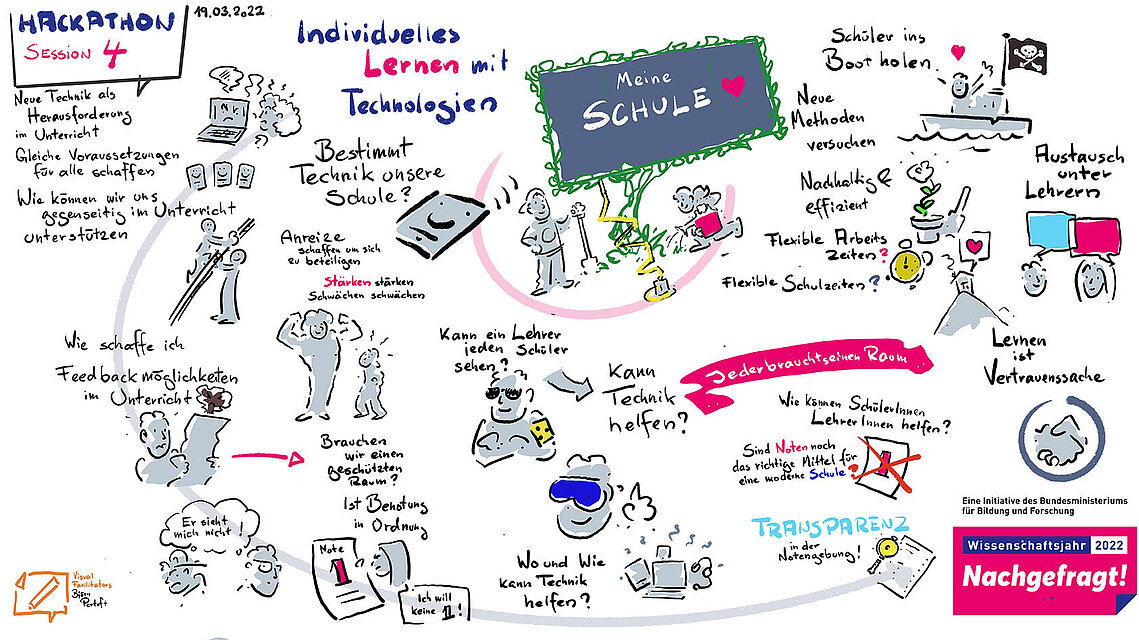 HACKATHON
SESSION 4
19.03.2022
Individuelles
Lernen mit
Technologien
Neue Technik als
Herausforderung
im Unterricht
Gleiche Voraussetzungen
für alle schaffen
Wie können wir uns
gegenseitig im Unterricht
unterstützen
Bestimmt
Technik unsere
Schule?
Anreize
schaffen um sich
zu beteiligen
Stärken stärken
Schwächen schwächen
Meine
SCHULE
Schüler ins
Boot holen
Neue
Methoden
versuchen
Nachhaltig &
effizient
Flexible Arbeits
Zeiten?
Flexible Schulzeiten?
Austausch
unter
Lehrern
Lernen
ist
Vertrauenssache
Wie schaffe ich
Feedback möglichkeiten
im Unterricht
Brauchen
wir einen
geschützten
Raum?
Er sieht
mich nicht!
Ist Benotung
in Ordnung
Note
1
Ich will
keine 1!
Kann ein Lehrer
jeden Schüler
sehen?
Kann
Technik
helfen?
Jeder braucht seinen Raum
Wie können SchülerInnen
LehrerInnen helfen?
Sind Noten noch
das richtige Mittel für
eine moderne Schule?
1
Wo und Wie
kann Technik
helfen?
TRANSPARENZ
in der
Notengebung!
Eine Initiative des Bundesministeriums
für Bildung und Forschung
Wissenschaftsjahr 2022
Nachgefragt!
Visual
Facilitators